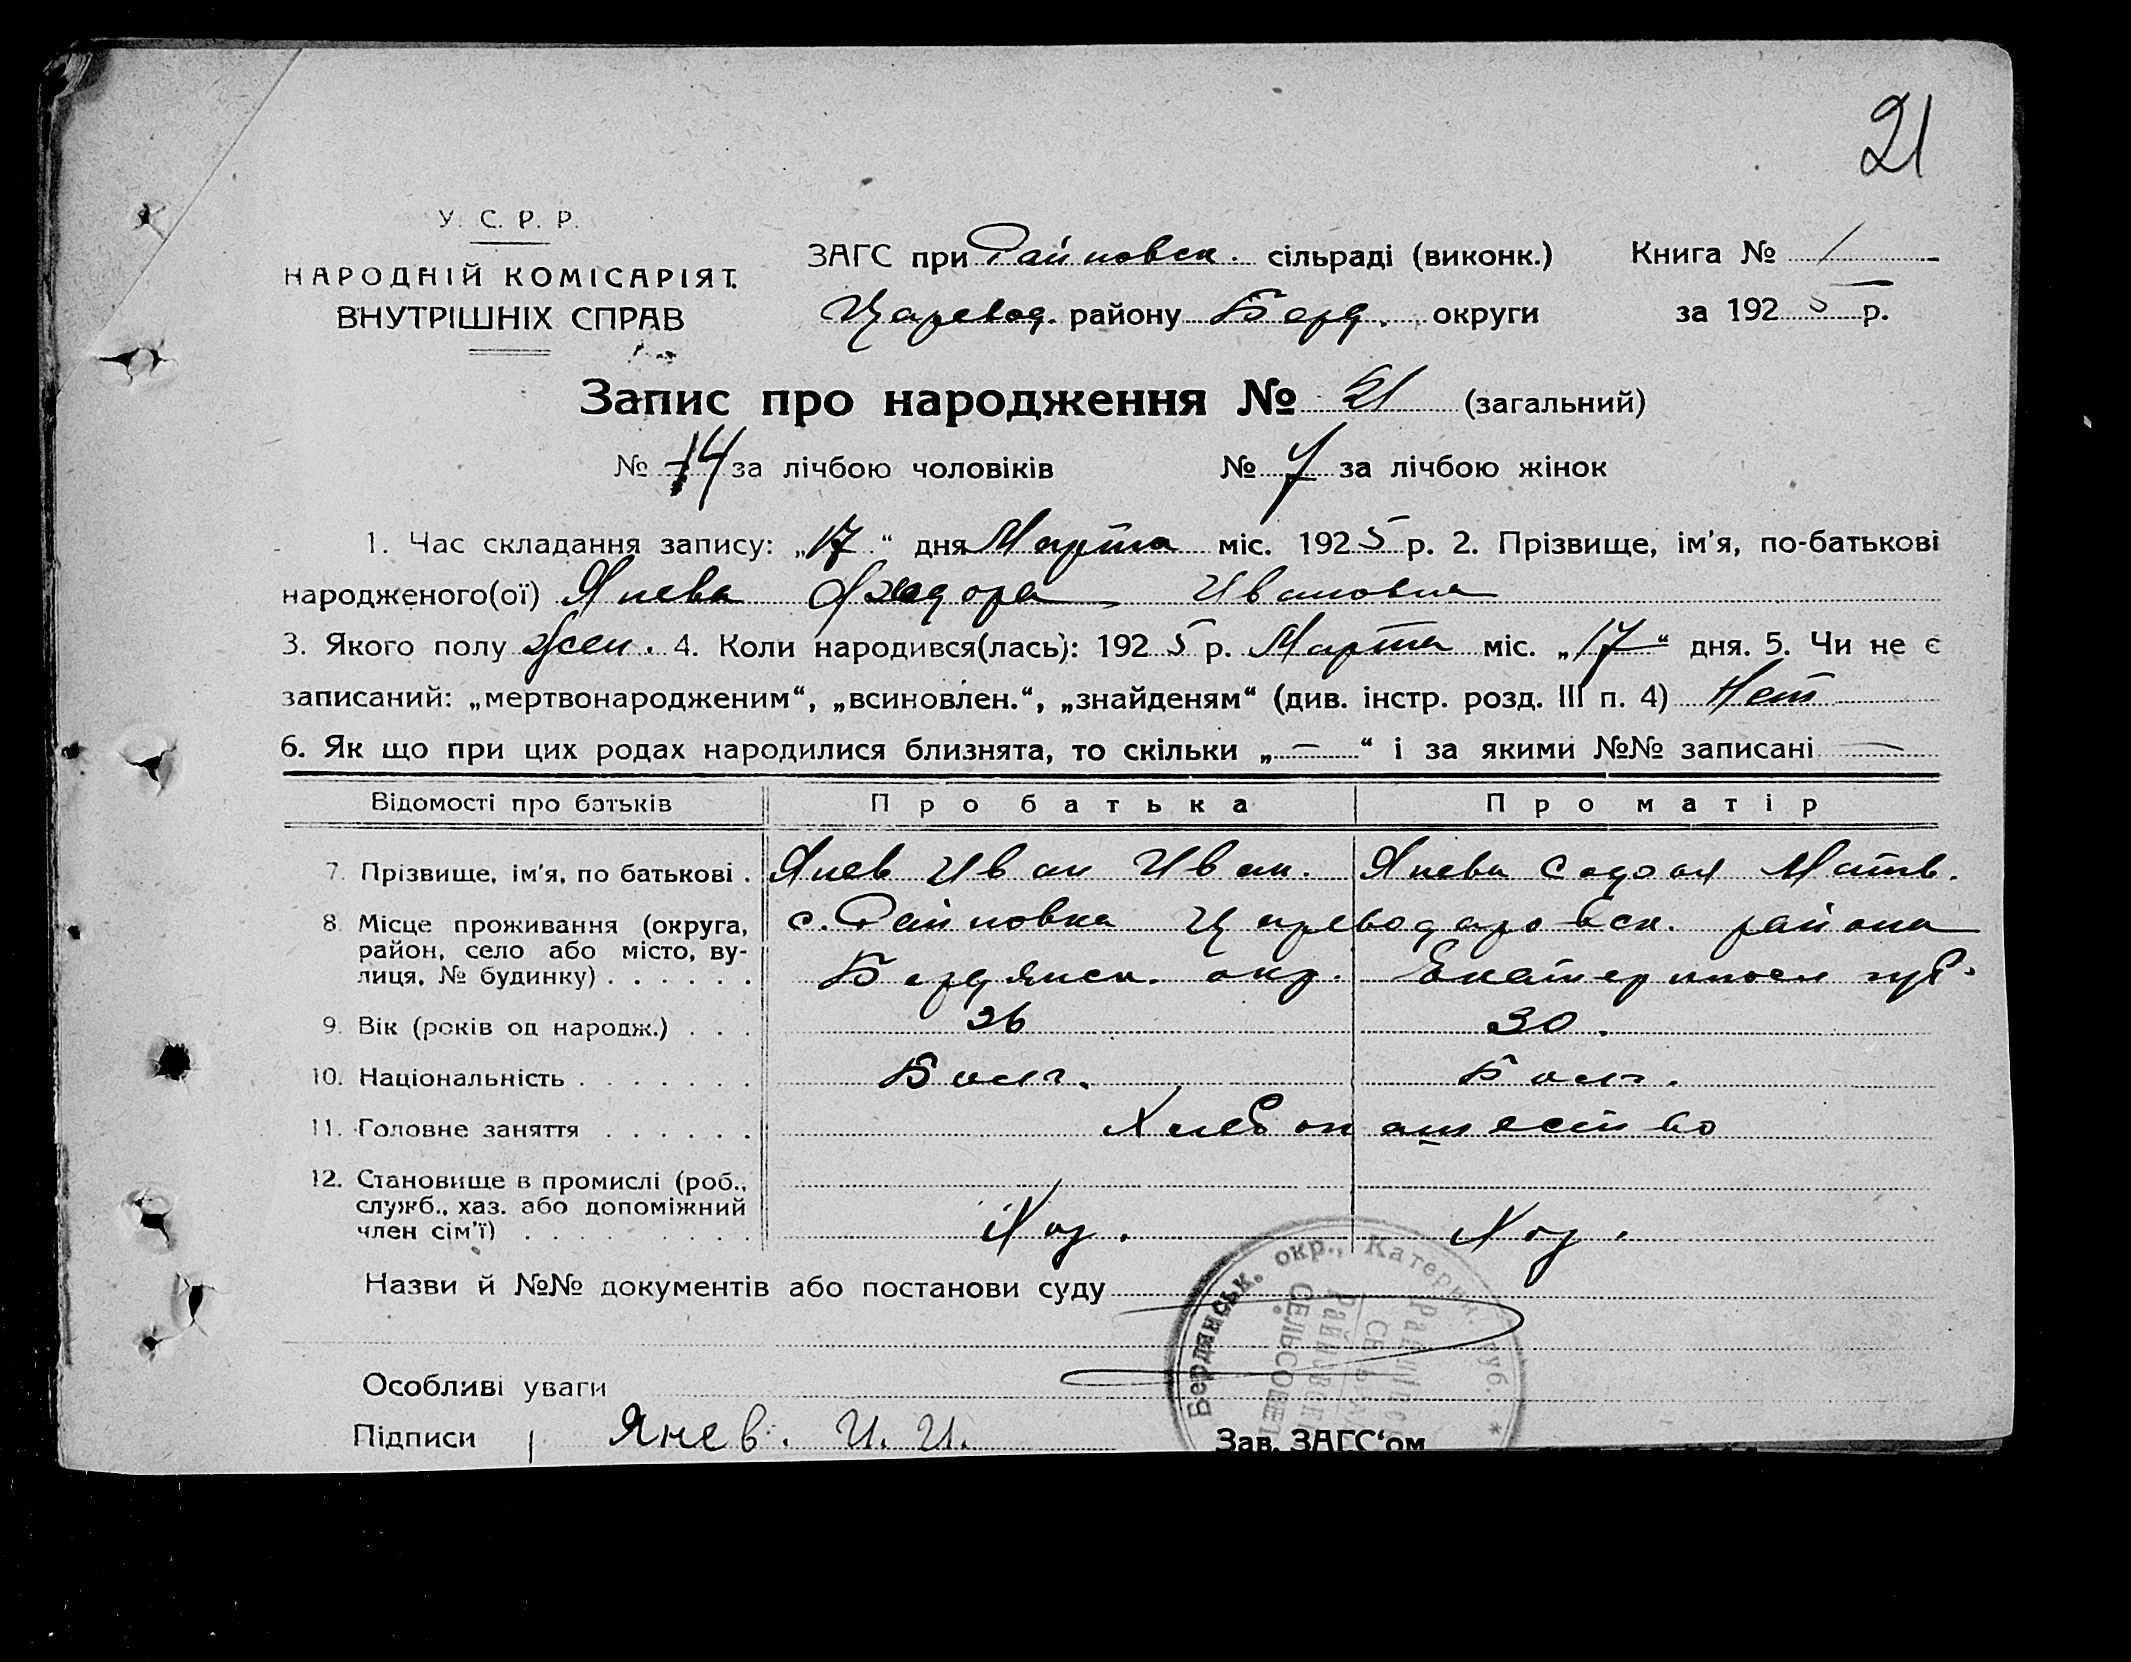 21
У. С. Р. Р.
НАРОДНІЙ КОМІСАРІЯТ
ВНУТРІШНІХ СПРАВ
ЗАГС при Райновск. сільраді (виконк.) Книга № 1
Царевод. району Берд. округи за 192 5 р.
Запис про народження № 21 (загальний)
№ 14 за лічбою чоловіків № 7 за лічбою жінок
1. Час складання запису: „17“ дня Марта міс. 192 5 р. 2. Прізвище, ім'я, по-батькові
народженого(ої) Янева Ивановна
3. Якого полу жен. 4. Коли народився(лась): 192 5 р. Марта міс. „17“ дня. 5. Чи не є
записаний: „мертвонародженим“, „всиновлен.“, „знайденям“ (див. інстр. розд. III п. 4) Нет
6. Як що при цих родах народилися близнята, то скільки „—“ і за якими №№ записані —
Відомості про батьків Про батька Про матір
7. Прізвище, ім'я, по батькові . Янев Иван Иван. Янева Матв.
8. Місце проживання (округа, с. Райновка Цареводаровск. района
район, село або місто, ву-
лиця, № будинку) . . . . . . Бердянск. окр. Екатериносл губ.
9. Вік (років од народж.) . . . 26 30.
10. Національність . . . . . . . Болг. Болг.
11. Головне заняття . . . . . . Хлебопашество
12. Становище в промислі (роб.,
служб., хаз. або допоміжний
член сім'ї) . . . . . . . . . Хоз. Хоз.
Назви й №№ документів або постанови суду
Бердянськ. окр., Катерин. губ. *
Райновск
СЕЛЬСОВЕТ
Особливі уваги
Підписи Янев. И. И. Зав. ЗАГС‘ом